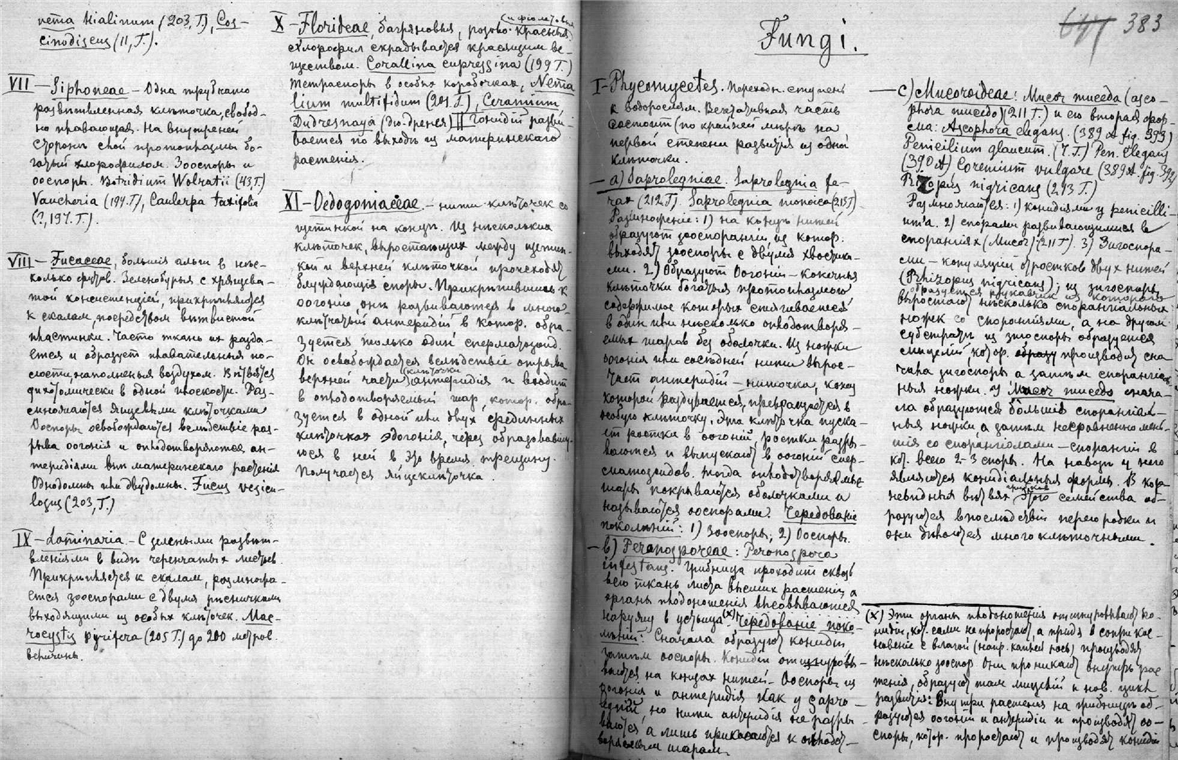 nema Hialinum (203, Т.), Cos-
cinodiscus (11, Т.).
VII — Siphoneae — Одна трубчато
развѣтвленная клѣточка, свобод-
но плавающая. На внутренней
сторонѣ слой протоплазмы бо-
гатый хлорофилом. Зооспоры и
ооспоры. Botridium Wolratii (43 Т.)
Vaucheria (197 Т.), Caulerpa taxifolia
(?, 197. Т.).
VIII — Fucaceae, большія алги в нѣс-
колько футов. Зеленобурыя с хрящева-
той консистенцией, прикрѣпляется
к скалам, посредством вѣтвистой
пластинки. Часто ткань их разда-
ется и образует плавательныя по-
лости, наполненыя воздухом. Вѣтвятся
дихотомически в одной плоскости. Раз-
множаются яйцевыми клѣточками
Ооспоры освобождаются вслѣдствіе раз-
рыва оогонія и оплодотворяются ан-
теридіями внѣ материнскаго растенія
Однодомны или двудомны. Fucus vesicu-
losus (203, Т.)
IX — Laminaria — С зелеными развѣт-
вленіями в видѣ черенчатых листьев.
Прикрѣпляется к скалам, размножа-
ется зооспорами с двумя рѣсничками
выходящими из особых клѣточек. Mac-
rocystis pyrifera (205 Т.) до 200 метров
величины.
X — Florideae, багряновыя, розово-красныя (и фіолетовыя)
хлорофил скрадывается красящим ве-
ществом. Corallina cupressina (199 Т.)
Тетраспоры в особых коробочках, Nema
lium multifidum (201 Т.), Ceramium,
Dudresnaya (дю-дренея) || гонидіи разви-
вается по выходѣ из материнскаго
растенія.
XI — Oedogoniaceae — нити клѣточек со
щетинкой на концѣ. Из нѣскольких
клѣточек, выростающих между щетин-
кой и верхней клѣточкой происходят
блуждающія споры. Прикрѣпившись к
оогонію они развиваются в много
клѣточный антеридій в котор. обра-
зуется только один сперматозоид.
Он освобождается вслѣдствіе отрыва
верхней части клѣточки антеридія и входит
в оплодотворяемый шар, котор. обра-
зуется в одной или двух срединных
клѣточках эдогонія, через образовавшу-
юся в ней в это время трещину.
Получается яйцеклѣточка.
Fungi.
383
I — Phycomycetes. Переходн. ступень
к водорослям. Вегетативная часть
состоит (по крайней мѣрѣ на
первой степени развитія из одной
клѣточки.
— a) Saprolegniae. Saprolegnia fe-
rax (212 Т.). Saprolegnia monoica (215 Т.)
Размноженіе: 1) на концѣ нитей
образуют зооспорангіи из котор.
выходят зооспоры с двумя хвостика-
ми. 2) Образуют Оогоніи — конечныя
клѣточки богатыя протоплазмою
содержимое которых стягивается
в один или нѣсколько оплодотворя-
емых шаров без оболочки. Из ножки
оогонія или сосѣдней нити вырос-
тает антеридій — ниточка, конец
которой раздувается, превращается в
особую клѣточку. Эта клѣточка пуска-
ет ростки в оогоній, ростки разры-
ваются и выпускают в оогоній спер-
матозоидов. Тогда оплодотворяемые
шары покрываются оболочками и
называются ооспорами. Чередованіе
поколѣній: 1) Зооспоры, 2) Ооспоры.
— b) Peronosporeae: Peronospora
infestans. Грибница проходит сквозь
всю ткань листа высших растений, а
органы плодоношенія высовываются
наружу в устьица (x) Чередованіе поко-
лѣній: Сначала образуют конидіи
затѣм ооспоры. Конидіи отшнуровы-
ваются на концах нитей — Ооспоры из
оогонія и антеридія как у запро-
легній, но нити антеридія не разры-
ваются, а лишь прикасаются к оплодот-
воряемым шарам.
— c) Mucoroideae: Mucor mucedo (asco-
phora mucedo) (211 Т.) и его вторая фор-
ма: Ascophora elegans. (389 a fig. 393)
Penicilium glaucum. (7. Т.) Pen. Elegans
(390 a) Coremium vulgare (389 a fig. 392)
Rhizopus nigricans (243 Т.)
Размножаются: 1) конидіями у penicilli-
um'а. 2) спорами развивающимися в
спорангіях (Mucor) (211 Т.). 3) Зигоспора-
ми — копуляціи отростков двух нитей
(Rhizopus nigricans); из зигоспоры
образуется пузырник из котораго
выростают нѣсколько спорангіальных
ножек со спорангіями, а на другом
субстратѣ из зигоспоры образуется
мицелій котор. производит сна-
чала зигоспоры а затѣм спорангіаль-
ныя ножки. У Mucor mucedo снача-
ла образуются большія спорангіаль-
ныя ножки, а затѣм несравненно мень-
шія со спорангіолами — спорангіи в
кот. всего 2-3 споры. На навозѣ у него
являются конидіальныя формы. В кора-
невидных вѣтвях этого семейства об-
разуются впослѣдствіи перегородки и
они дѣлаются многоклѣточными.
(x) Эти органы плодоношенія отшнуровывают ко-
нидіи, кот. сами не проростают, а придя в соприкос-
новеніе с влагой (напр. каплей росы) производят
нѣсколько зооспор. Они проникают внутрь рас-
тенія, образуют там мицелій и нов. цикл
развитія: Внутри растенія на грибницѣ об-
разуются оогоніи и антеридіи и производят оо-
споры, котор. проростают и производят конидіи